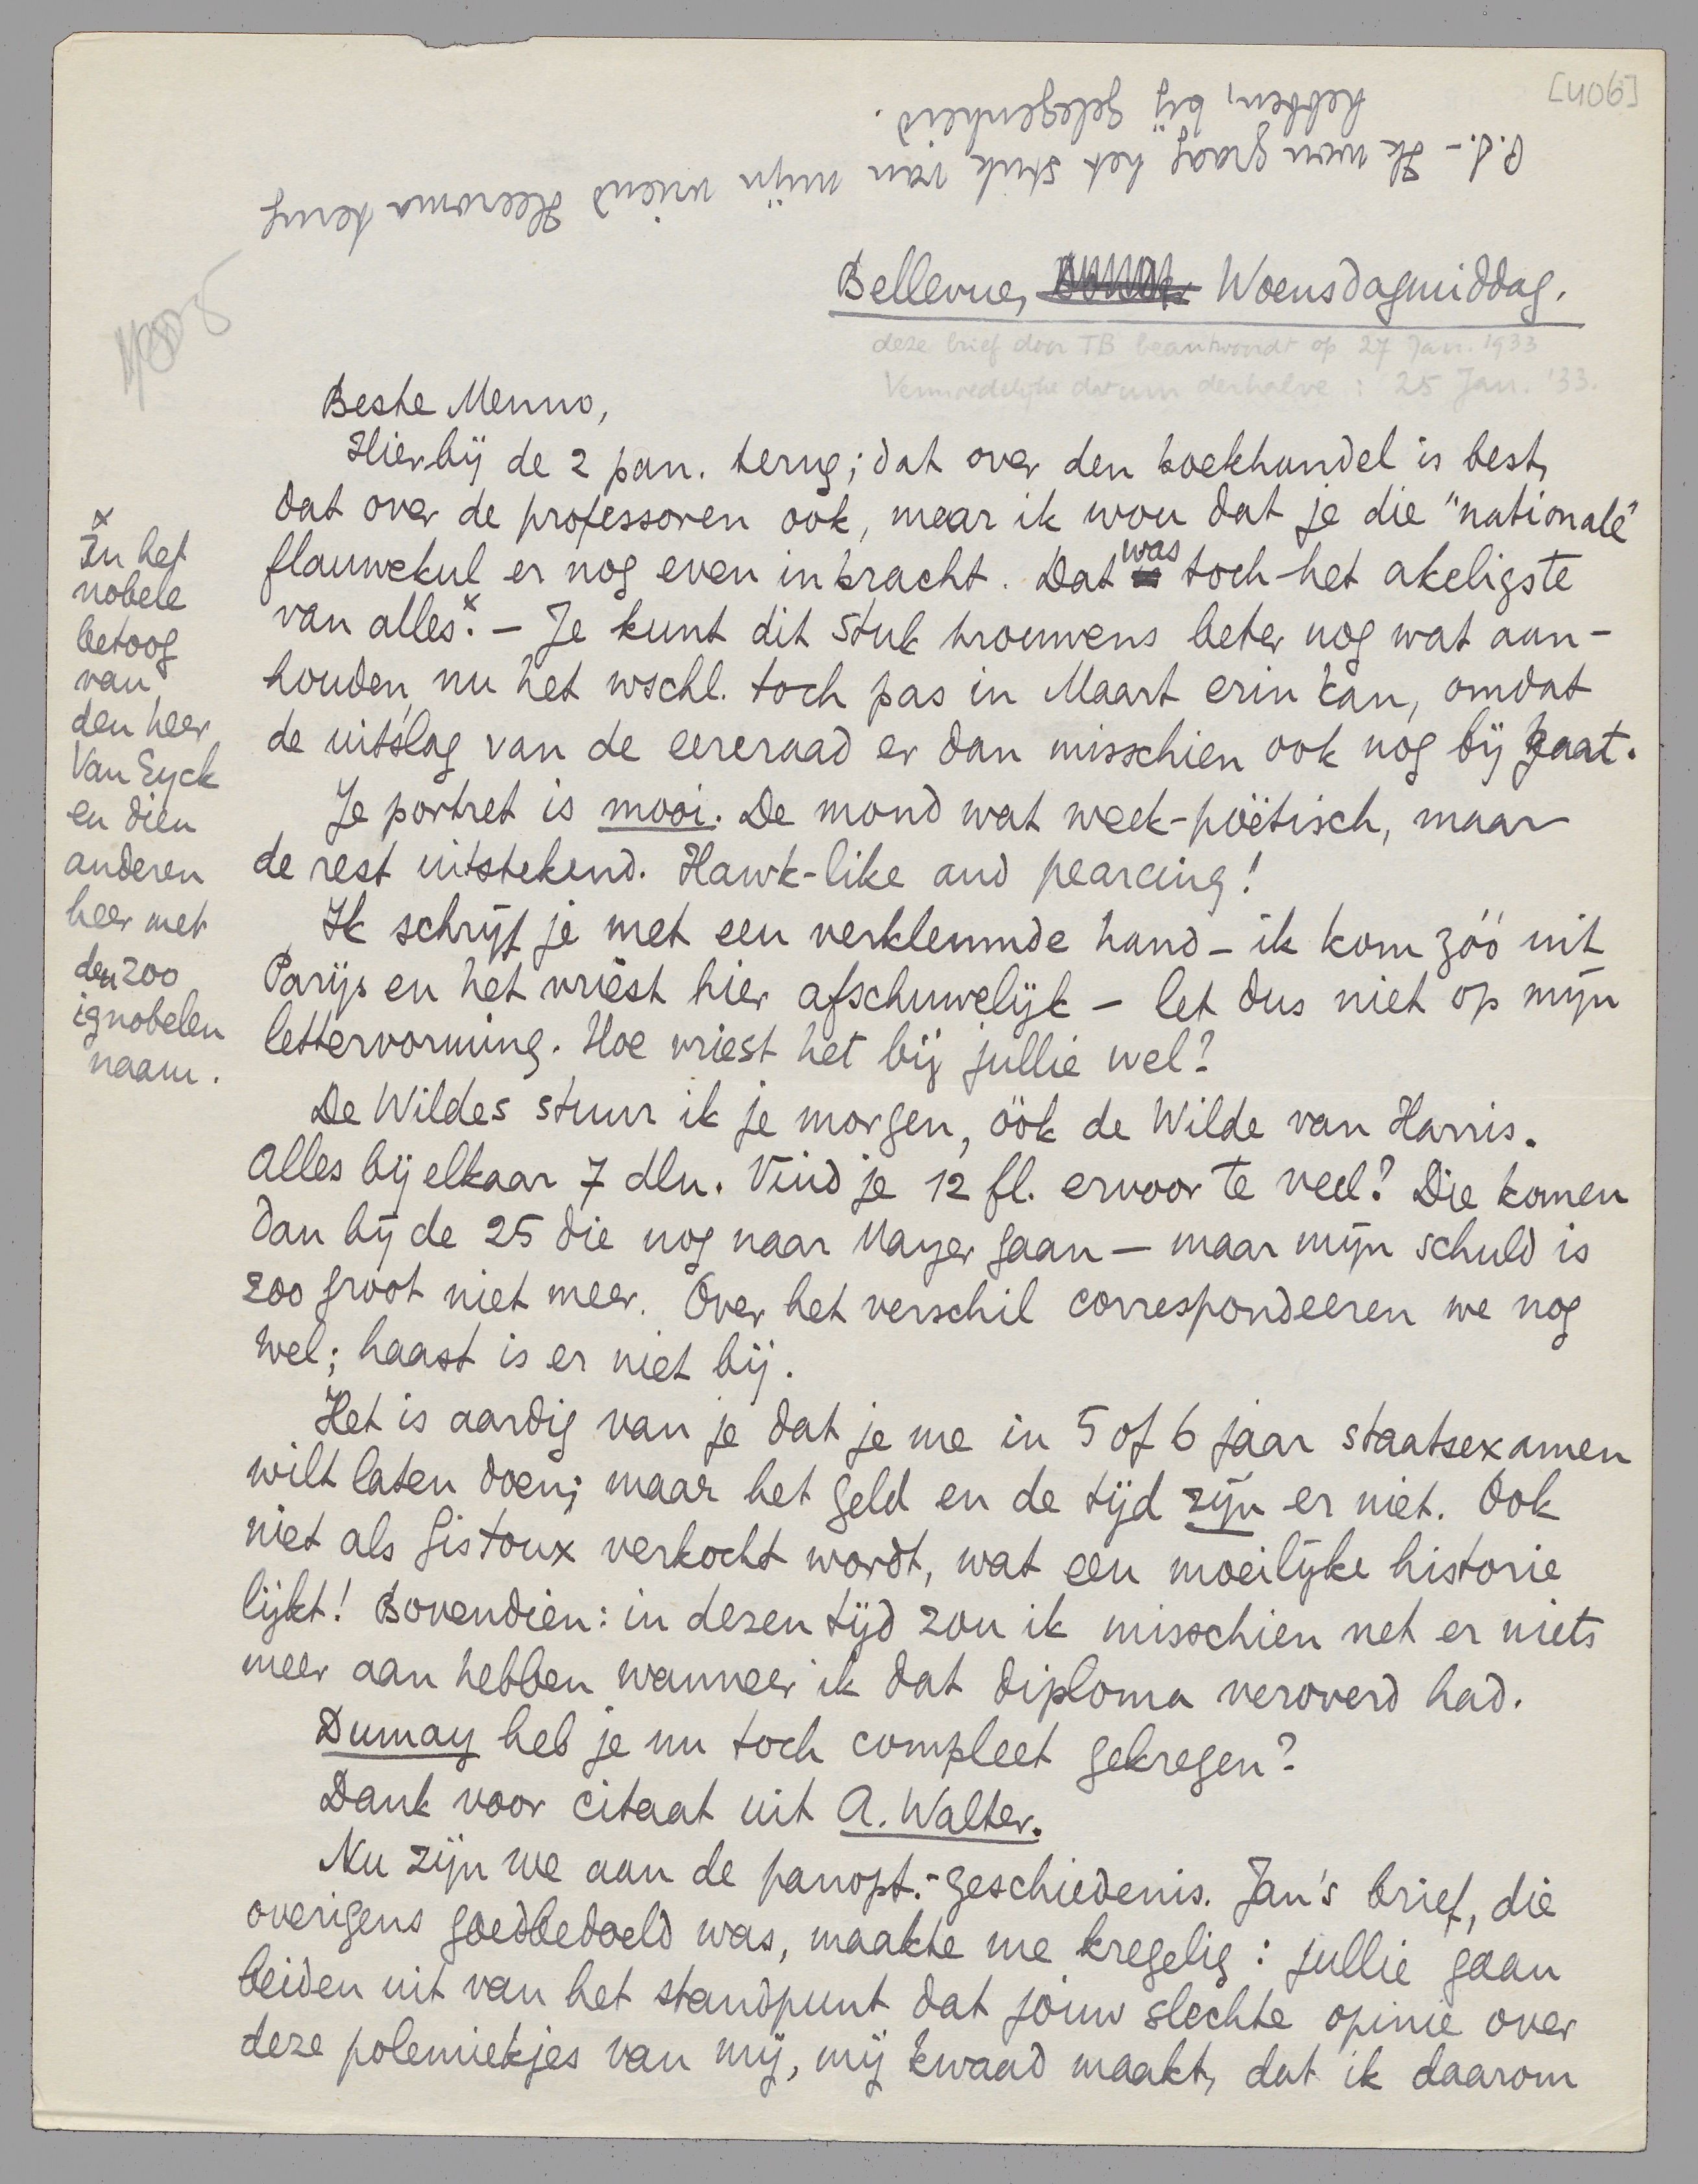 [406]
P.S. – Ik wou graag het stuk van mijn vriend Heeroma terug
hebben, bij gelegenheid.
Bellevue, Woensdagmiddag.
deze brief door TB beantwoordt op 27 Jan. 1933
Vermoedelijke datum derhalve : 25 Jan. '33.
Beste Menno,
Hierbij de 2 pan. terug; dat over den boekhandel is best,
dat over de professoren ook, maar ik wou dat je die "nationale"
flauwekul er nog even in bracht. Dat was toch het akeligste
van alles.x – Je kunt dit stuk trouwens beter nog wat aan-
houden, nu het wschl. toch pas in Maart erin kan, omdat
de uitslag van de eereraad er dan misschien ook nog bij gaat.
Je portret is mooi. De mond wat week-poëtisch, maar
de rest uitstekend. Hawk-like and pearcing!
Ik schrijf je met een verklemde hand – ik kom zóó uit
Parijs en het vriest hier afschuwelijk – let dus niet op mijn
lettervorming. Hoe vriest het bij jullie wel?
De Wildes stuur ik je morgen, óók de Wilde van Harris.
Alles bij elkaar 7 dln. Vind je 12 fl. ervoor te veel? Die komen
dan bij de 25 die nog naar Mayer gaan – maar mijn schuld is
zoo groot niet meer. Over het verschil correspondeeren we nog
wel; haast is er niet bij.
Het is aardig van je dat je me in 5 of 6 jaar staatsexamen
wilt laten doen; maar het geld en de tijd zijn er niet. Ook
niet als Gistoux verkocht wordt, wat een moeilijke historie
lijkt! Bovendien: in dezen tijd zou ik misschien net er niets
meer aan hebben wanneer ik dat diploma veroverd had.
Dumay heb je nu toch compleet gekregen?
Dank voor citaat uit A. Walter.
Nu zijn we aan de panopt.-geschiedenis. Jan's brief, die
overigens goedbedoeld was, maakte me kregelig: jullie gaan
beiden uit van het standpunt dat jouw slechte opinie over
deze polemiekjes van mij, mij kwaad maakt, dat ik daarom
x
In het
nobele
betoog
van
den heer
Van Eyck
en dien
anderen
heer met
den zoo
ignobelen
naam.